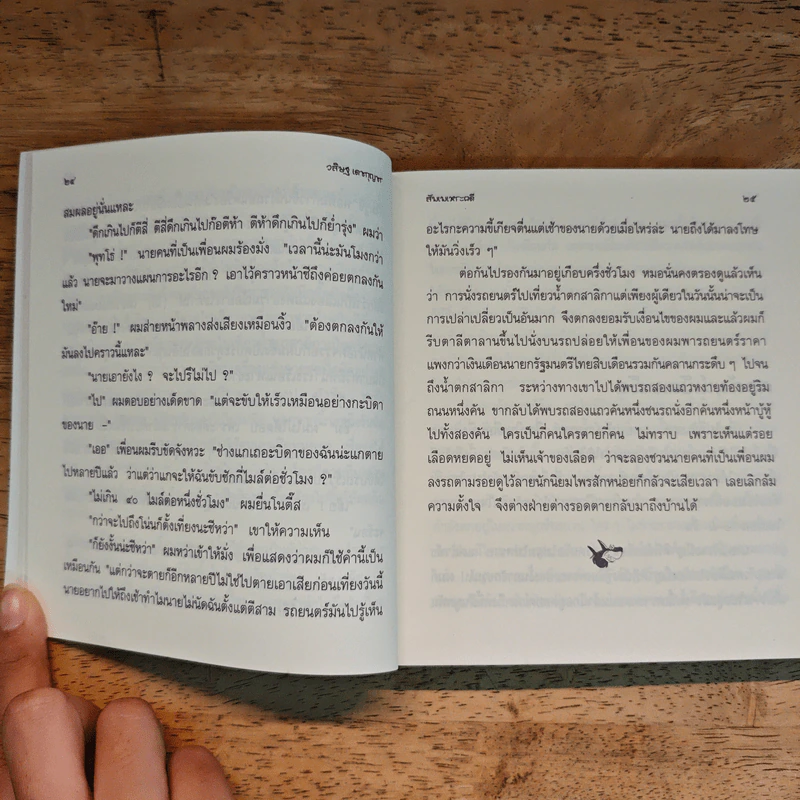 ๒๔
วสิษฐ เดชกุญชร
สมผลอยู่นั่นแหละ
"ดึกเกินไปก็ตีสี่ ตีสี่ดึกเกินไปก๊อตีห้า ตีห้าดึกเกินไปก็ย่ำรุ่ง" ผมว่า
"พุทโธ่ !" นายคนที่เป็นเพื่อนผมร้องมั่ง "เวลานี้น่ะมันโมงกว่า
แล้ว นายจะมาวางแผนการอะไรอีก ? เอาไว้คราวหน้าซีถึงค่อยตกลงกัน
ใหม่"
"อ๊าย !" ผมส่ายหน้าพลางส่งเสียงเหมือนงิ้ว "ต้องตกลงกันให้
มันลงไปคราวนี้แหละ"
"นายเอายังไง ? จะไปรึไม่ไป ?"
"ไป" ผมตอบอย่างเด็ดขาด "แต่จะขับให้เร็วเหมือนอย่างกะบิดา
ของนาย –"
"เออ" เพื่อนผมรีบขัดจังหวะ "ช่างแกเถอะบิดาของฉันน่ะแกตาย
ไปหลายปีแล้ว ว่าแต่ว่าแกจะให้ฉันขับซักกี่ไมล์ต่อชั่วโมง ?"
"ไม่เกิน ๔๐ ไมล์ต่อหนึ่งชั่วโมง" ผมยื่นโนติ๊ส
"กว่าจะไปถึงโน่นก็ตั้งเที่ยงนะซีหว่า" เขาให้ความเห็น
"ก็ยังงั้นน่ะซีหว่า" ผมหว่าเข้าให้มั่ง เพื่อแสดงว่าผมก็ใช้คำนี้เป็น
เหมือนกัน "แต่กว่าจะตายก็อีกหลายปีไม่ใช่ไปตายเอาเสียก่อนเที่ยงวันนี้
นายอยากไปให้ถึงเช้าทำไมนายไม่นัดฉันตั้งแต่ตีสาม รถยนตร์มันไปรู้เห็น
สันตะหะวดี
๒๕
อะไรกะความขี้เกียจตื่นแต่เช้าของนายด้วยเมื่อไหร่ล่ะ นายถึงได้มาลงโทษ
ให้มันวิ่งเร็ว ๆ"
ต่อกันไปรองกันมาอยู่เกือบครึ่งชั่วโมง หมอนั่นคงตรองดูแล้วเห็น
ว่า การนั่งรถยนตร์ไปเที่ยวน้ำตกสาลิกาแต่เพียงผู้เดียวในวันนั้นน่าจะเป็น
การเปล่าเปลี่ยวเป็นอันมาก จึงตกลงยอมรับเงื่อนไขของผมและแล้วผมก็
รีบตาลีตาลานขึ้นไปนั่งบนรถปล่อยให้เพื่อนของผมพารถยนตร์ราคา
แพงกว่าเงินเดือนนายกรัฐมนตรีไทยสิบเดือนรวมกันคลานกระดึบ ๆ ไปจน
ถึงน้ำตกสาลิกา ระหว่างทางเขาไปได้พบรถสองแถวหงายท้องอยู่ริม
ถนนหนึ่งคัน ขากลับได้พบรถสองแถวคันหนึ่งชนรถนั่งอีกคันหนึ่งหน้าบู้หู้
ไปทั้งสองคัน ใครเป็นกี่คนใครตายกี่คน ไม่ทราบ เพราะเห็นแต่รอย
เลือดหยดอยู่ ไม่เห็นเจ้าของเลือด ว่าจะลองชวนนายคนที่เป็นเพื่อนผม
ลงรถตามรอยดูไว้ลายนักนิยมไพรสักหน่อยก็กลัวจะเสียเวลา เลยเลิกล้ม
ความตั้งใจ จึงต่างฝ่ายต่างรอดตายกลับมาถึงบ้านได้